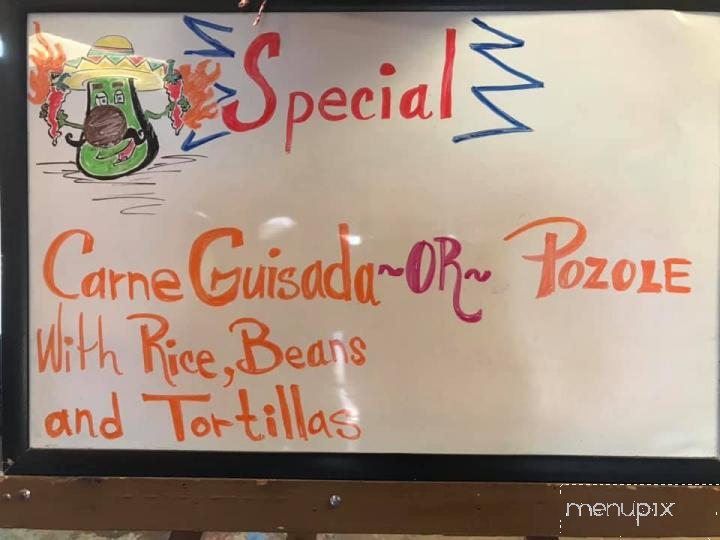 Special
Carne Guisada ~OR~ POZOLE
With Rice, Beans
and Tortillas
menupix